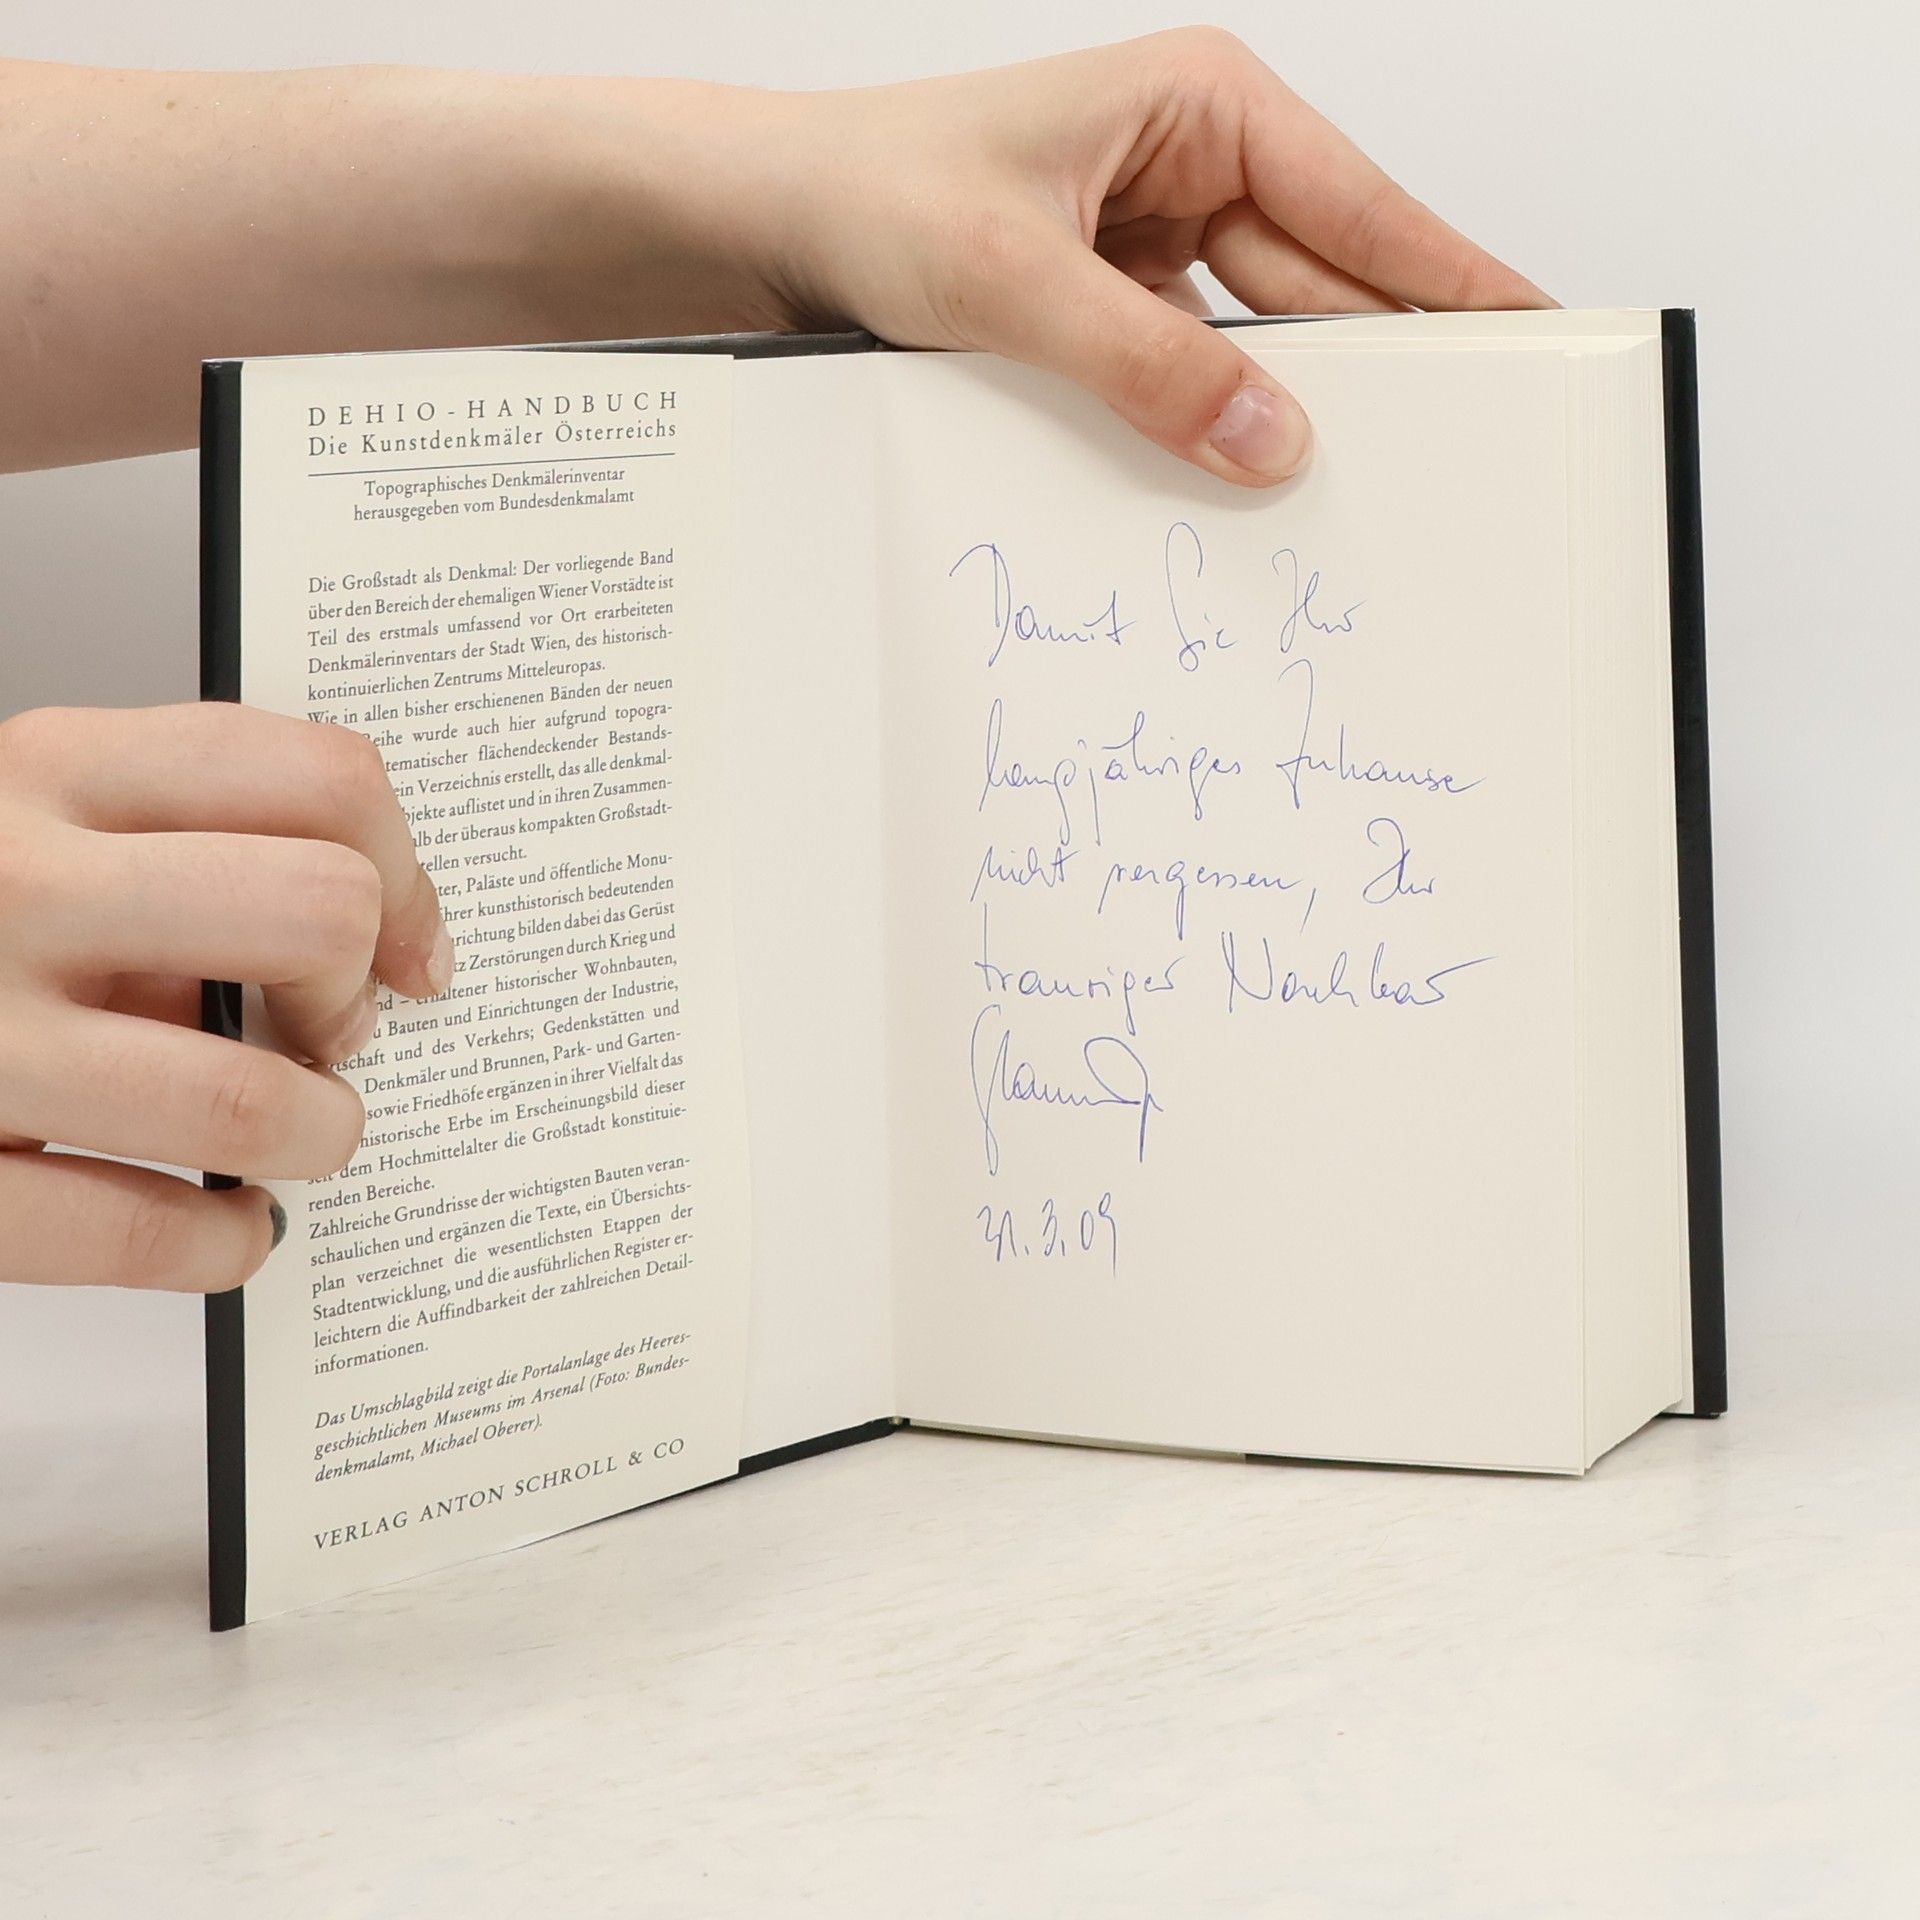 DEHIO-HANDBUCH
Die Kunstdenkmäler Österreichs
Topographisches Denkmälerinventar
herausgegeben vom Bundesdenkmalamt
Die Großstadt als Denkmal: Der vorliegende Band
über den Bereich der ehemaligen Wiener Vorstädte ist
Teil des erstmals umfassend vor Ort erarbeiteten
Denkmälerinventars der Stadt Wien, des historisch-
kontinuierlichen Zentrums Mitteleuropas.
Wie in allen bisher erschienenen Bänden der neuen
eihe wurde auch hier aufgrund topogra-
tematischer flächendeckender Bestands-
ein Verzeichnis erstellt, das alle denkmal-
bjekte auflistet und in ihren Zusammen-
alb der überaus kompakten Großstadt-
tellen versucht.
ter, Paläste und öffentliche Monu-
ihrer kunsthistorisch bedeutenden
richtung bilden dabei das Gerüst
tz Zerstörungen durch Krieg und
nd – erhaltener historischer Wohnbauten,
u Bauten und Einrichtungen der Industrie,
rtschaft und des Verkehrs; Gedenkstätten und
Denkmäler und Brunnen, Park- und Garten-
sowie Friedhöfe ergänzen in ihrer Vielfalt das
historische Erbe im Erscheinungsbild dieser
seit dem Hochmittelalter die Großstadt konstituie-
renden Bereiche.
Zahlreiche Grundrisse der wichtigsten Bauten veran-
schaulichen und ergänzen die Texte, ein Übersichts-
plan verzeichnet die wesentlichsten Etappen der
Stadtentwicklung, und die ausführlichen Register er-
leichtern die Auffindbarkeit der zahlreichen Detail-
informationen.
Das Umschlagbild zeigt die Portalanlage des Heeres-
geschichtlichen Museums im Arsenal (Foto: Bundes-
denkmalamt, Michael Oberer).
VERLAG ANTON SCHROLL & CO
Damit Sie Ihr
langjähriges Zuhause
nicht vergessen, Ihr
trauriger Nachbar
31.3.09